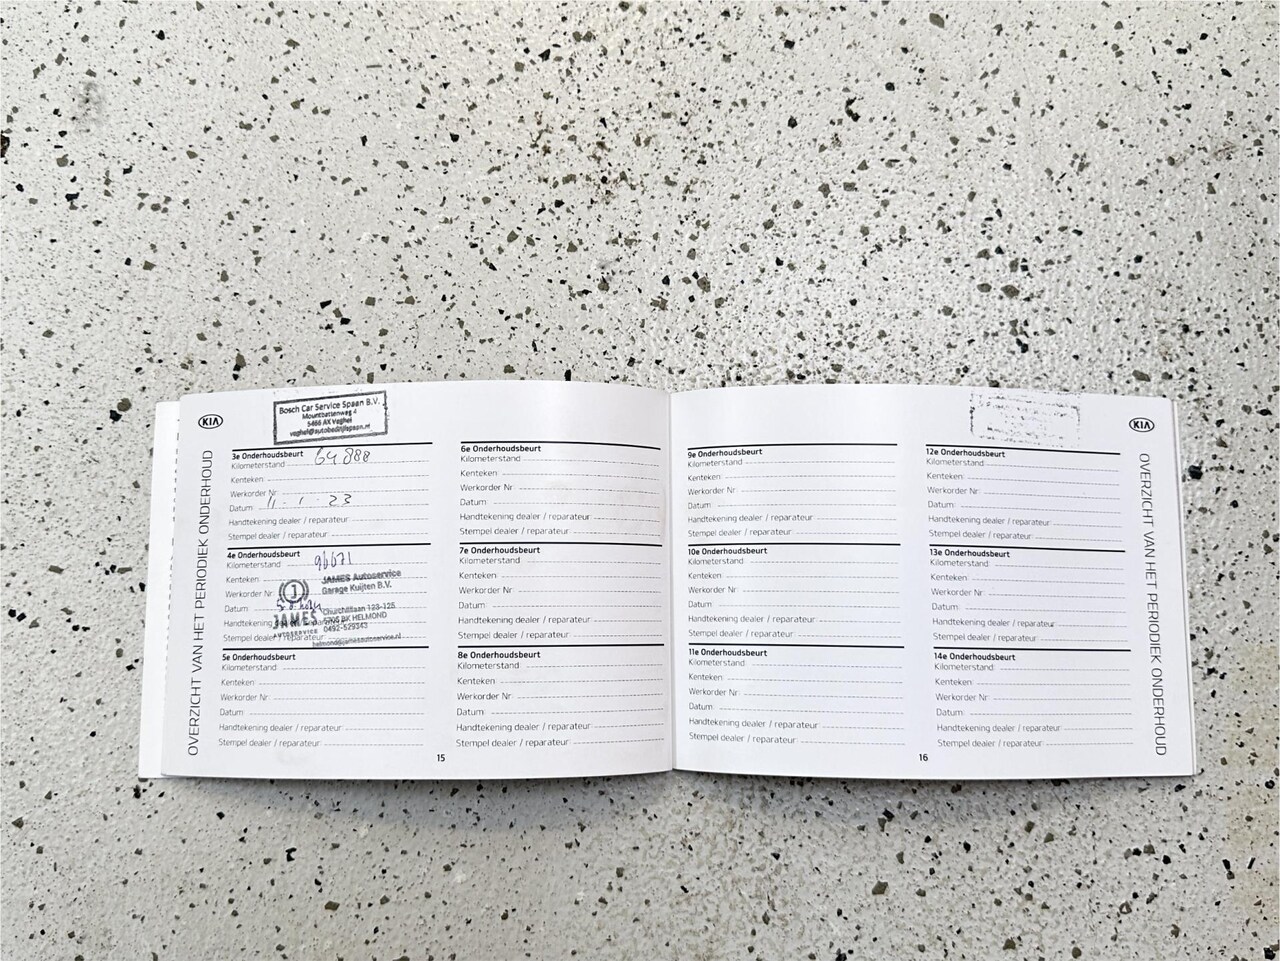 KIA
Bosch Car Service Spaan B.V.
Mountbattenweg 4
5466 AX Veghel
veghel@autobedrijfspaan.nl
OVERZICHT VAN HET PERIODIEK ONDERHOUD
3e Onderhoudsbeurt
Kilometerstand 64888
Kenteken
Werkorder Nr.
Datum 11 - 1 - 23
Handtekening dealer / reparateur:
Stempel dealer / reparateur:
4e Onderhoudsbeurt
Kilometerstand 96671
Kenteken
Werkorder Nr.
Datum
Handtekening
Stempel dealer / reparateur:
J
JAMES
AUTOSERVICE
JAMES Autoservice
Garage Kuijten B.V.
Churchilllaan 123-125
HELMOND
0492-529343
helmond@jamesautoservice.nl
5e Onderhoudsbeurt
Kilometerstand:
Kenteken:
Werkorder Nr:
Datum:
Handtekening dealer / reparateur:
Stempel dealer / reparateur:
6e Onderhoudsbeurt
Kilometerstand:
Kenteken:
Werkorder Nr:
Datum:
Handtekening dealer / reparateur:
Stempel dealer / reparateur:
7e Onderhoudsbeurt
Kilometerstand:
Kenteken:
Werkorder Nr:
Datum:
Handtekening dealer / reparateur:
Stempel dealer / reparateur:
8e Onderhoudsbeurt
Kilometerstand:
Kenteken:
Werkorder Nr:
Datum:
Handtekening dealer / reparateur:
Stempel dealer / reparateur:
15
9e Onderhoudsbeurt
Kilometerstand:
Kenteken:
Werkorder Nr:
Datum:
Handtekening dealer / reparateur:
Stempel dealer / reparateur:
10e Onderhoudsbeurt
Kilometerstand:
Kenteken:
Werkorder Nr:
Datum:
Handtekening dealer / reparateur:
Stempel dealer / reparateur:
11e Onderhoudsbeurt
Kilometerstand:
Kenteken:
Werkorder Nr:
Datum:
Handtekening dealer / reparateur:
Stempel dealer / reparateur:
12e Onderhoudsbeurt
Kilometerstand:
Kenteken:
Werkorder Nr:
Datum:
Handtekening dealer / reparateur:
Stempel dealer / reparateur:
13e Onderhoudsbeurt
Kilometerstand:
Kenteken:
Werkorder Nr:
Datum:
Handtekening dealer / reparateur:
Stempel dealer / reparateur:
14e Onderhoudsbeurt
Kilometerstand:
Kenteken:
Werkorder Nr:
Datum:
Handtekening dealer / reparateur:
Stempel dealer / reparateur:
16
KIA
OVERZICHT VAN HET PERIODIEK ONDERHOUD